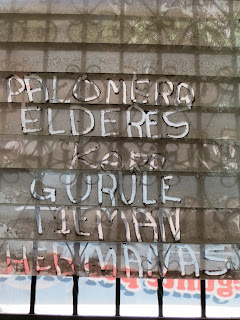 PALOMERA
ELDERES
GURULE
TILMAN
HERMANAS